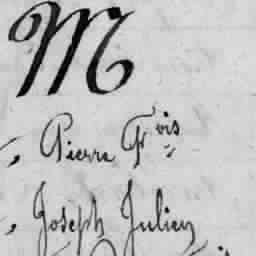 M
, Pierre Fois
, Joseph Julien